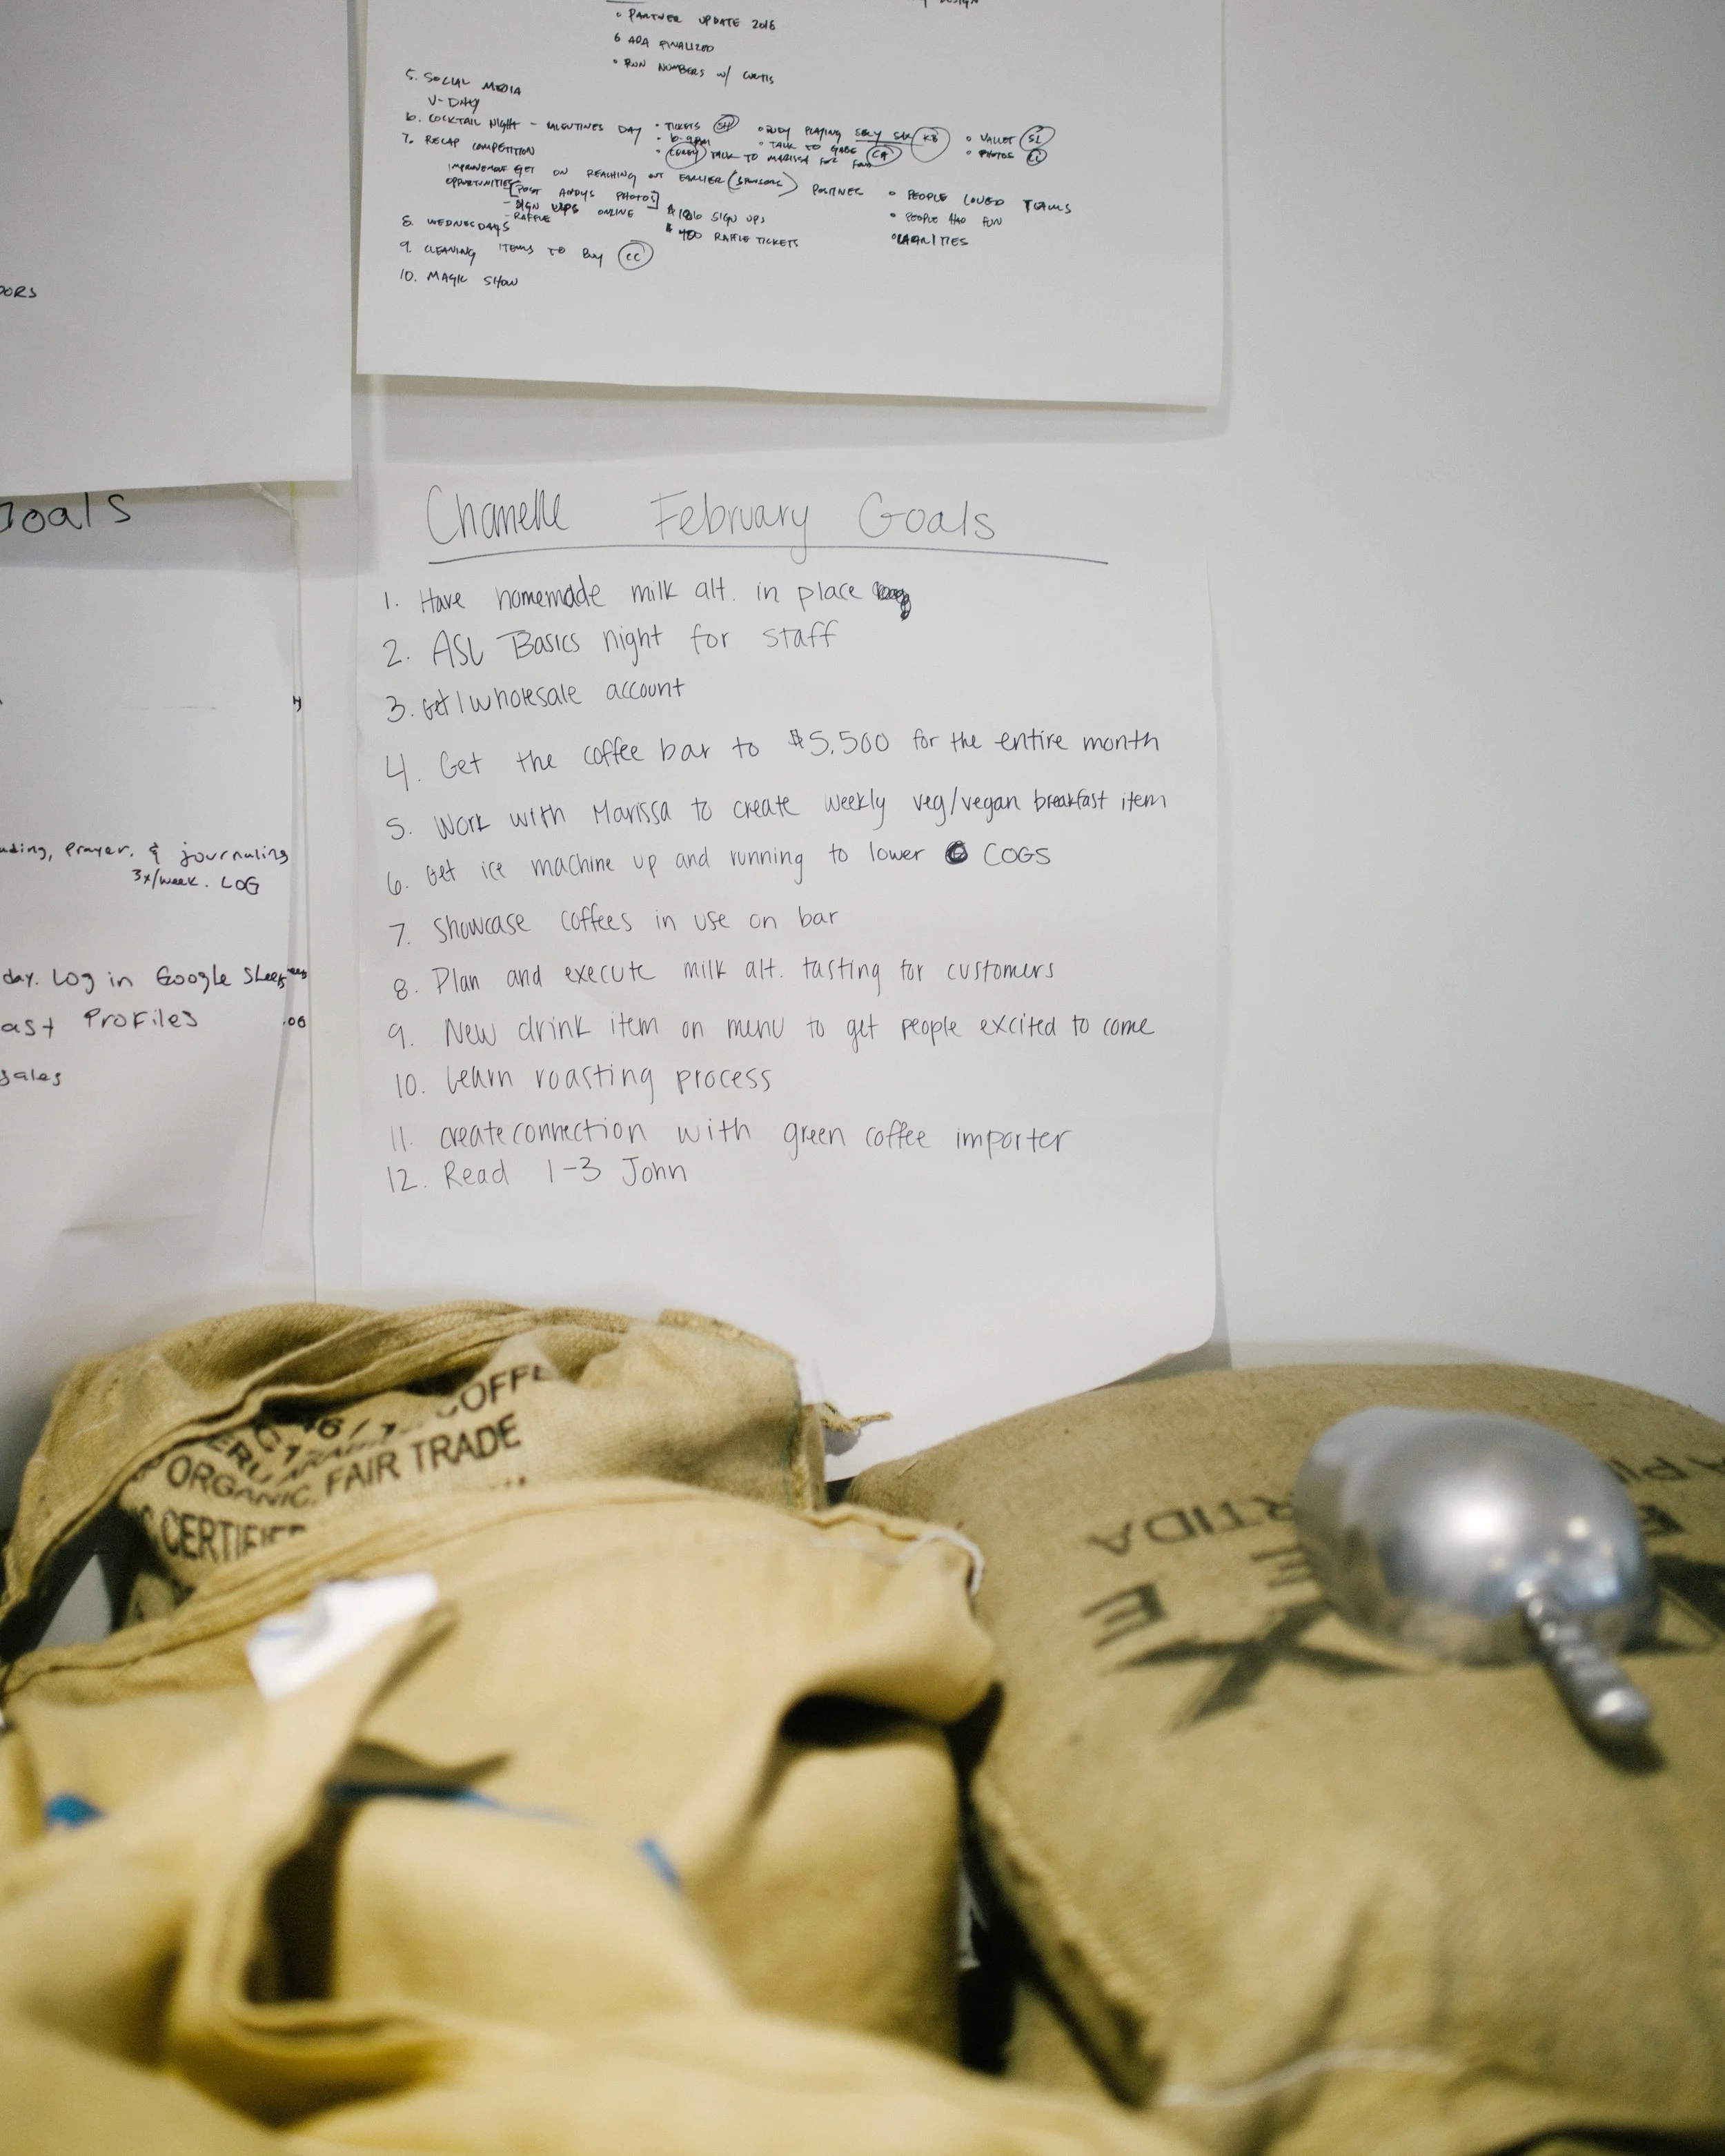 • PARTNER UPDATE 2016
6 ADA FINALIZED
• RUN NUMBERS W/ CURTIS
5. SOCIAL MEDIA
V-DAY
6. COCKTAIL NIGHT - VALENTINES DAY • TICKETS SH • RUDY PLAYING SEXY SAX KB • VALLET SL
• 6-9PM • TALK TO GABE CA • PHOTOS
• COREY TALK TO MARISSA FOR FOOD
7. RECAP COMPETITION
IMPROVEMENT GET ON REACHING OUT EARLIER (SPONSORS) POSITIVES • PEOPLE LOVED TEAMS
OPPORTUNITIES [POST ANDYS PHOTOS] • PEOPLE HAD FUN
- SIGN UPS ONLINE $ 186 SIGN UPS • CHARITIES
- RAFFLE $ 400 RAFFLE TICKETS
8. WEDNESDAYS
9. CLEANING ITEMS TO BUY CC
10. MAGIC SHOW
DORS
Goals
prayer, & journaling
3x/week. LOG
day. Log in Google Sheets
Profiles .06
sales
Chanelle February Goals
1. Have homemade milk alt. in place
2. ASL Basics night for staff
3. Get 1 wholesale account
4. Get the coffee bar to $5,500 for the entire month
5. Work with Marissa to create weekly veg/vegan breakfast item
6. Get ice machine up and running to lower COGS
7. Showcase coffees in use on bar
8. Plan and execute milk alt. tasting for customers
9. New drink item on menu to get people excited to come
10. Learn roasting process
11. create connection with green coffee importer
12. Read 1-3 John
ORGANIC, FAIR TRADE
CERTIFIED